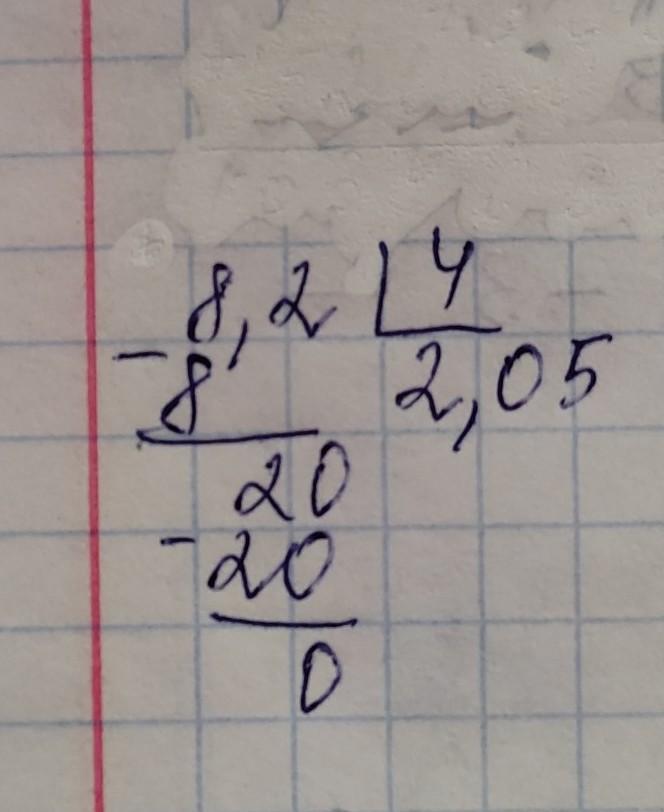 8,2 4
- 8 2,05
20
- 20
0